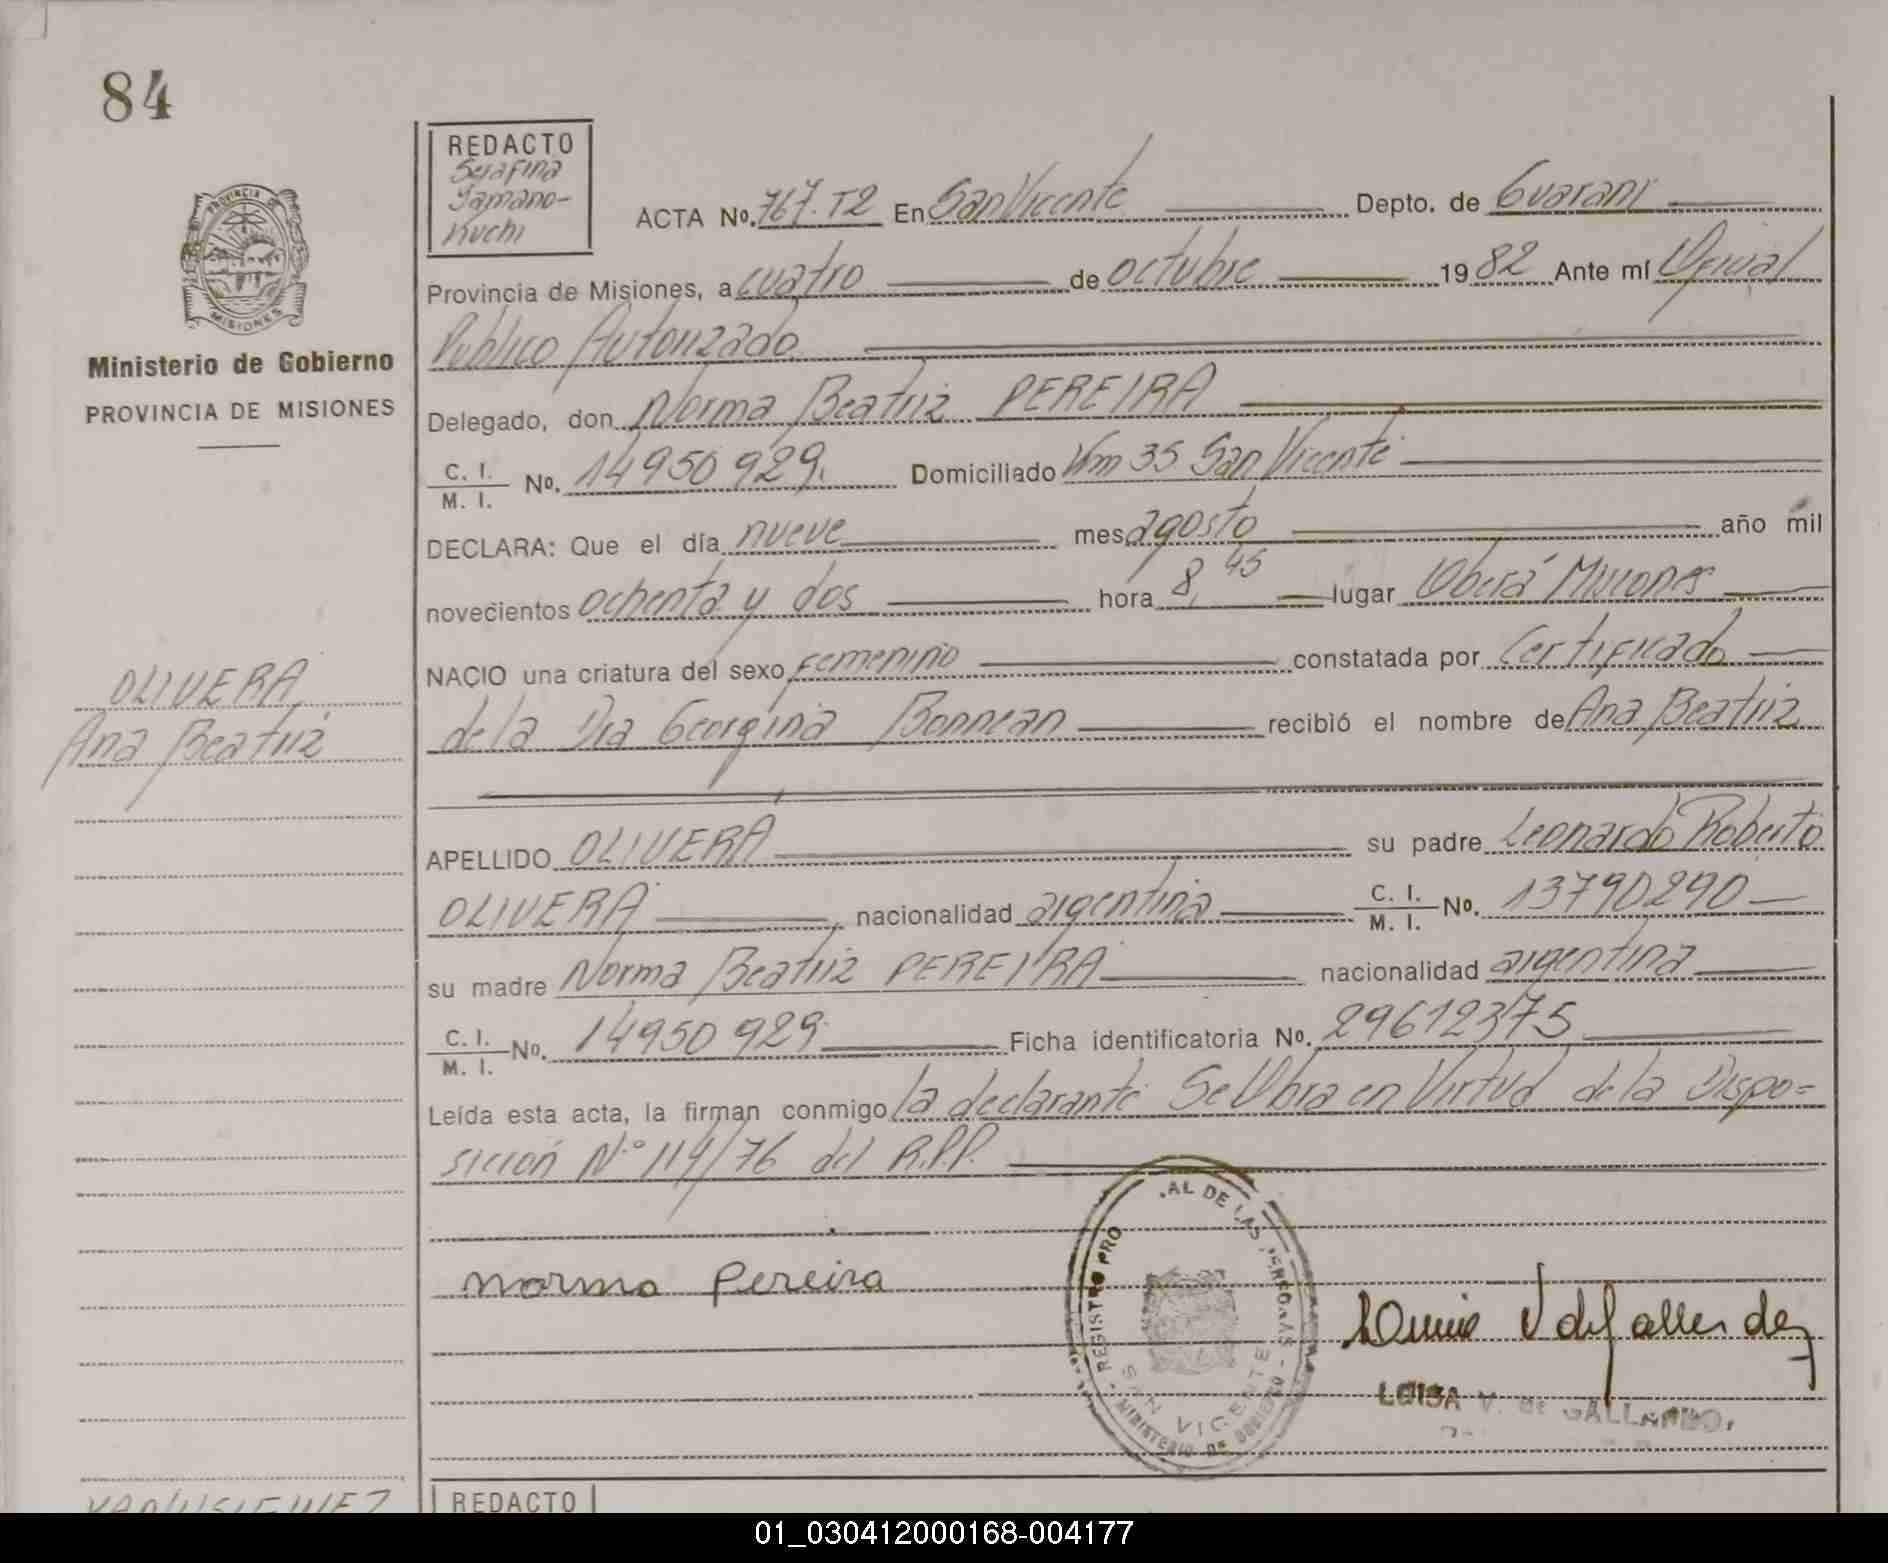 84
REDACTO
Serafina
Yamano-
Kuchi
ACTA No. 767.T2 En San Vicente Depto. de Guaraní
Provincia de Misiones, a cuatro de octubre 1982 Ante mí Oficial
Público Autorizado
Delegado, don Norma Beatriz PEREIRA
C. I.
M. I. No. 14950929. Domiciliado Km 35 San Vicente
DECLARA: Que el día nueve mes agosto año mil
novecientos ochenta y dos hora 8,45 lugar Oberá Misiones
NACIO una criatura del sexo femenino constatada por Certificado
de la Dra Georgina Bonnean recibió el nombre de Ana Beatriz
APELLIDO OLIVERA su padre Leonardo Roberto
OLIVERA, nacionalidad argentina C. I. M. I. No. 13790290
su madre Norma Beatriz PEREIRA nacionalidad argentina
C. I.
M. I. No. 14950929 Ficha identificatoria No. 29612375
Leída esta acta, la firman conmigo la declarante Se labra en Virtud de la Dispo=
sición N° 114/76 del R.P.P.
PROVINCIA DE
MISIONES
Ministerio de Gobierno
PROVINCIA DE MISIONES
OLIVERA
Ana Beatriz
Norma Pereira
REGISTRO PRO AL DE LAS PERSONAS - MINISTERIO DE GOBIERNO
SAN VICENTE
LUISA V. de GALLARDO.
REDACTO
01_030412000168-004177